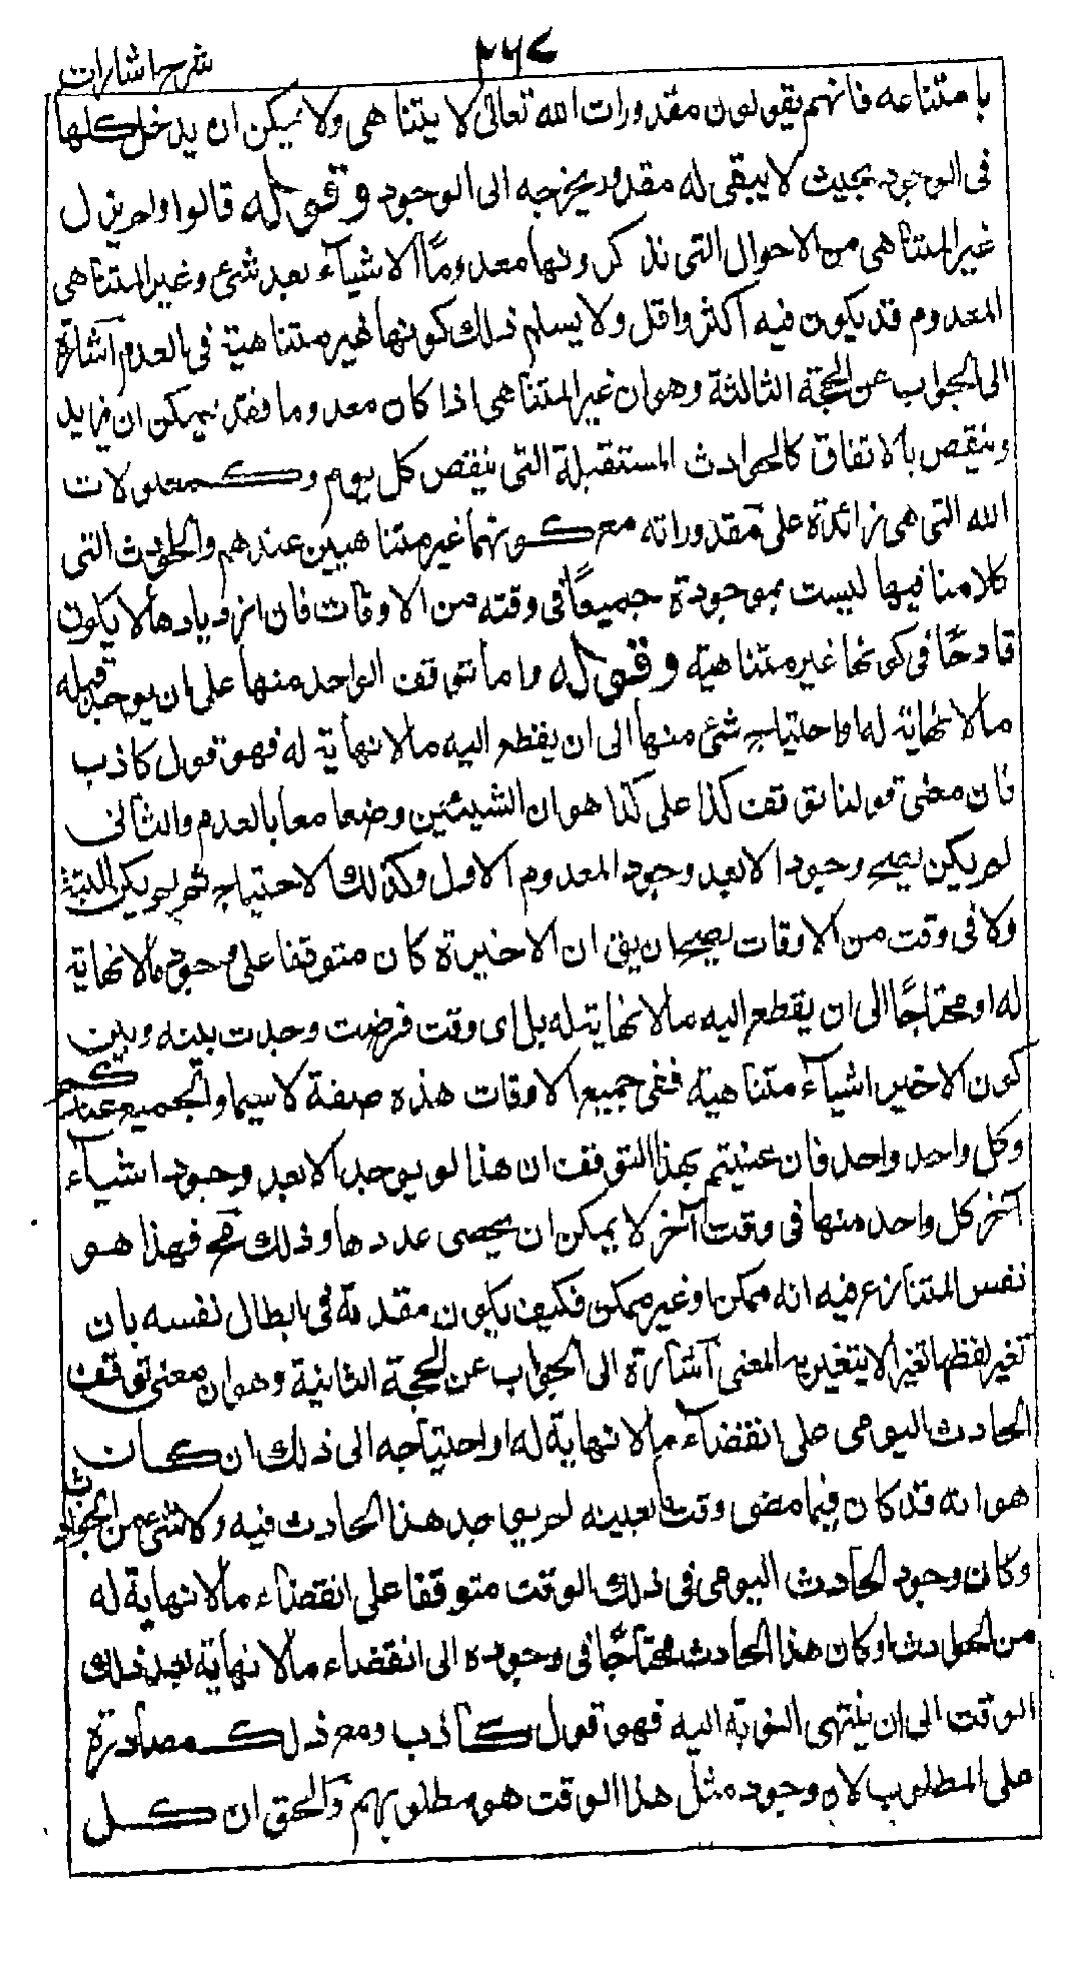 ٢٦٧
شرح اشارات
بامتناعه فانهم يقولون مقدورات الله تعالى لا يتناهى ولا يمكن ان يدخل كلها
فى الوجود بحيث لا يبقى له مقدور يخرجه الى الوجود وقوله قالوا ولم يزل
غير المتناهى من الاحوال التى نذكرونها معدوما الاشيآء بعد شئ وغير المتناهى
المعدوم قد يكون فيه اكثر واقل ولا يسلم ذلك كونها غير متناهية فى العدم آشارة
الى الجواب عن الحجة الثالثة وهو ان غير المتناهى اذا كان معدوما فقد يمكن ان يزايد
وينقص بالاتفاق كالحوادث المستقبلة التى ينقص كل يوم وكمعلولات
الله التى هى زائدة على مقدوراته مع كونهما غير متناهيين عندهم والحوادث التى
كلامنا فيها ليست بموجودة جميعًا فى وقته من الاوقات فان ازديادها لا يكون
قادحًا فى كونها غير متناهية وقوله واما توقف الواحد منها على ان يوجد قبله
مالا نهاية له او احتياج شئ منها الى ان يقطع اليه مالا نهاية له فهو قول كاذب
فان معنى قولنا توقف كذا على كذا هو ان الشيئين وضعا معا بالعدم والثانى
لم يكن يصح وجود الا بعد وجود المعدوم الاول وكذلك الاحتياج ثم لم يكن البتة
ولا فى وقت من الاوقات يصح ان يق ان الاخيرة كان متوقفا على وجود مالا نهاية
له او محتاجًا الى ان يقطع اليه مالا نهاية له بل اى وقت فرضت وجدت بينه وبين
كون الاخير اشيآء متناهية ففى جميع الاوقات هذه صفة لا سيما والجميع عندكم
وكل واحد واحد فان عنيتم بهذا التوقف ان هذا لو يوجد الا بعد وجود اشيآء
آخر كل واحد منها فى وقت آخر لا يمكن ان يحصى عددها وذلك مح فهذا هو
نفس المتنازع فيه انه ممكن او غير ممكن فكيف يكون مقدمة فى ابطال نفسه بان
تغير لفظها تغيرا لا يتغير به المعنى آشارة الى الجواب عن الحجة الثانية وهو ان معنى توقف
الحادث اليومى على انقضآء مالا نهاية له او احتياجه الى ذلك ان كان
هو انه قد كان فيما مضى وقت بعينه لم يوجد هذا الحادث فيه ولا شئ من الحوادث
وكان وجود الحادث اليومى فى ذلك الوقت متوقفا على انقضاء مالا نهاية له
من الحوادث او كان هذا الحادث محتاجًا فى وجوده الى انقضاء مالا نهاية بعد ذلك
الوقت الى ان ينتهى النوبة اليه فهو قول كاذب ومع ذلك مصادرة
على المطلوب لان وجود مثل هذا الوقت هو مطلوبهم والحق ان كل